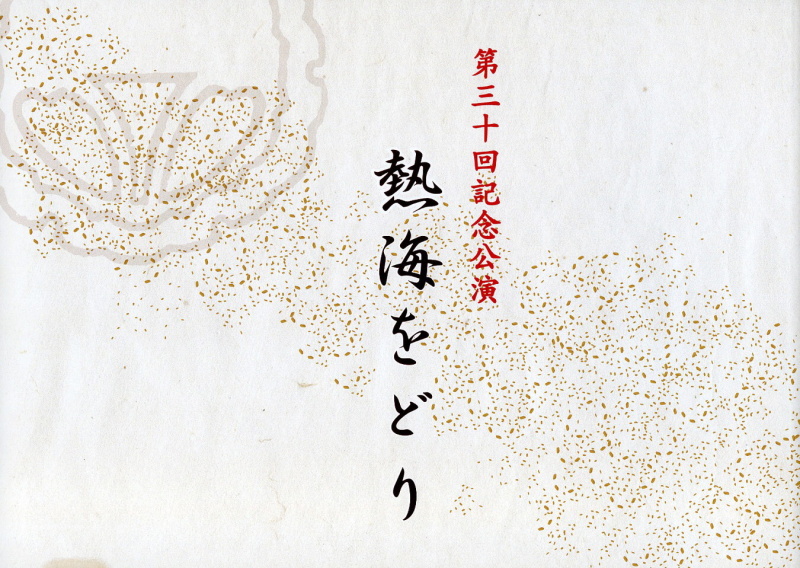 第三十回記念公演
熱海をどり